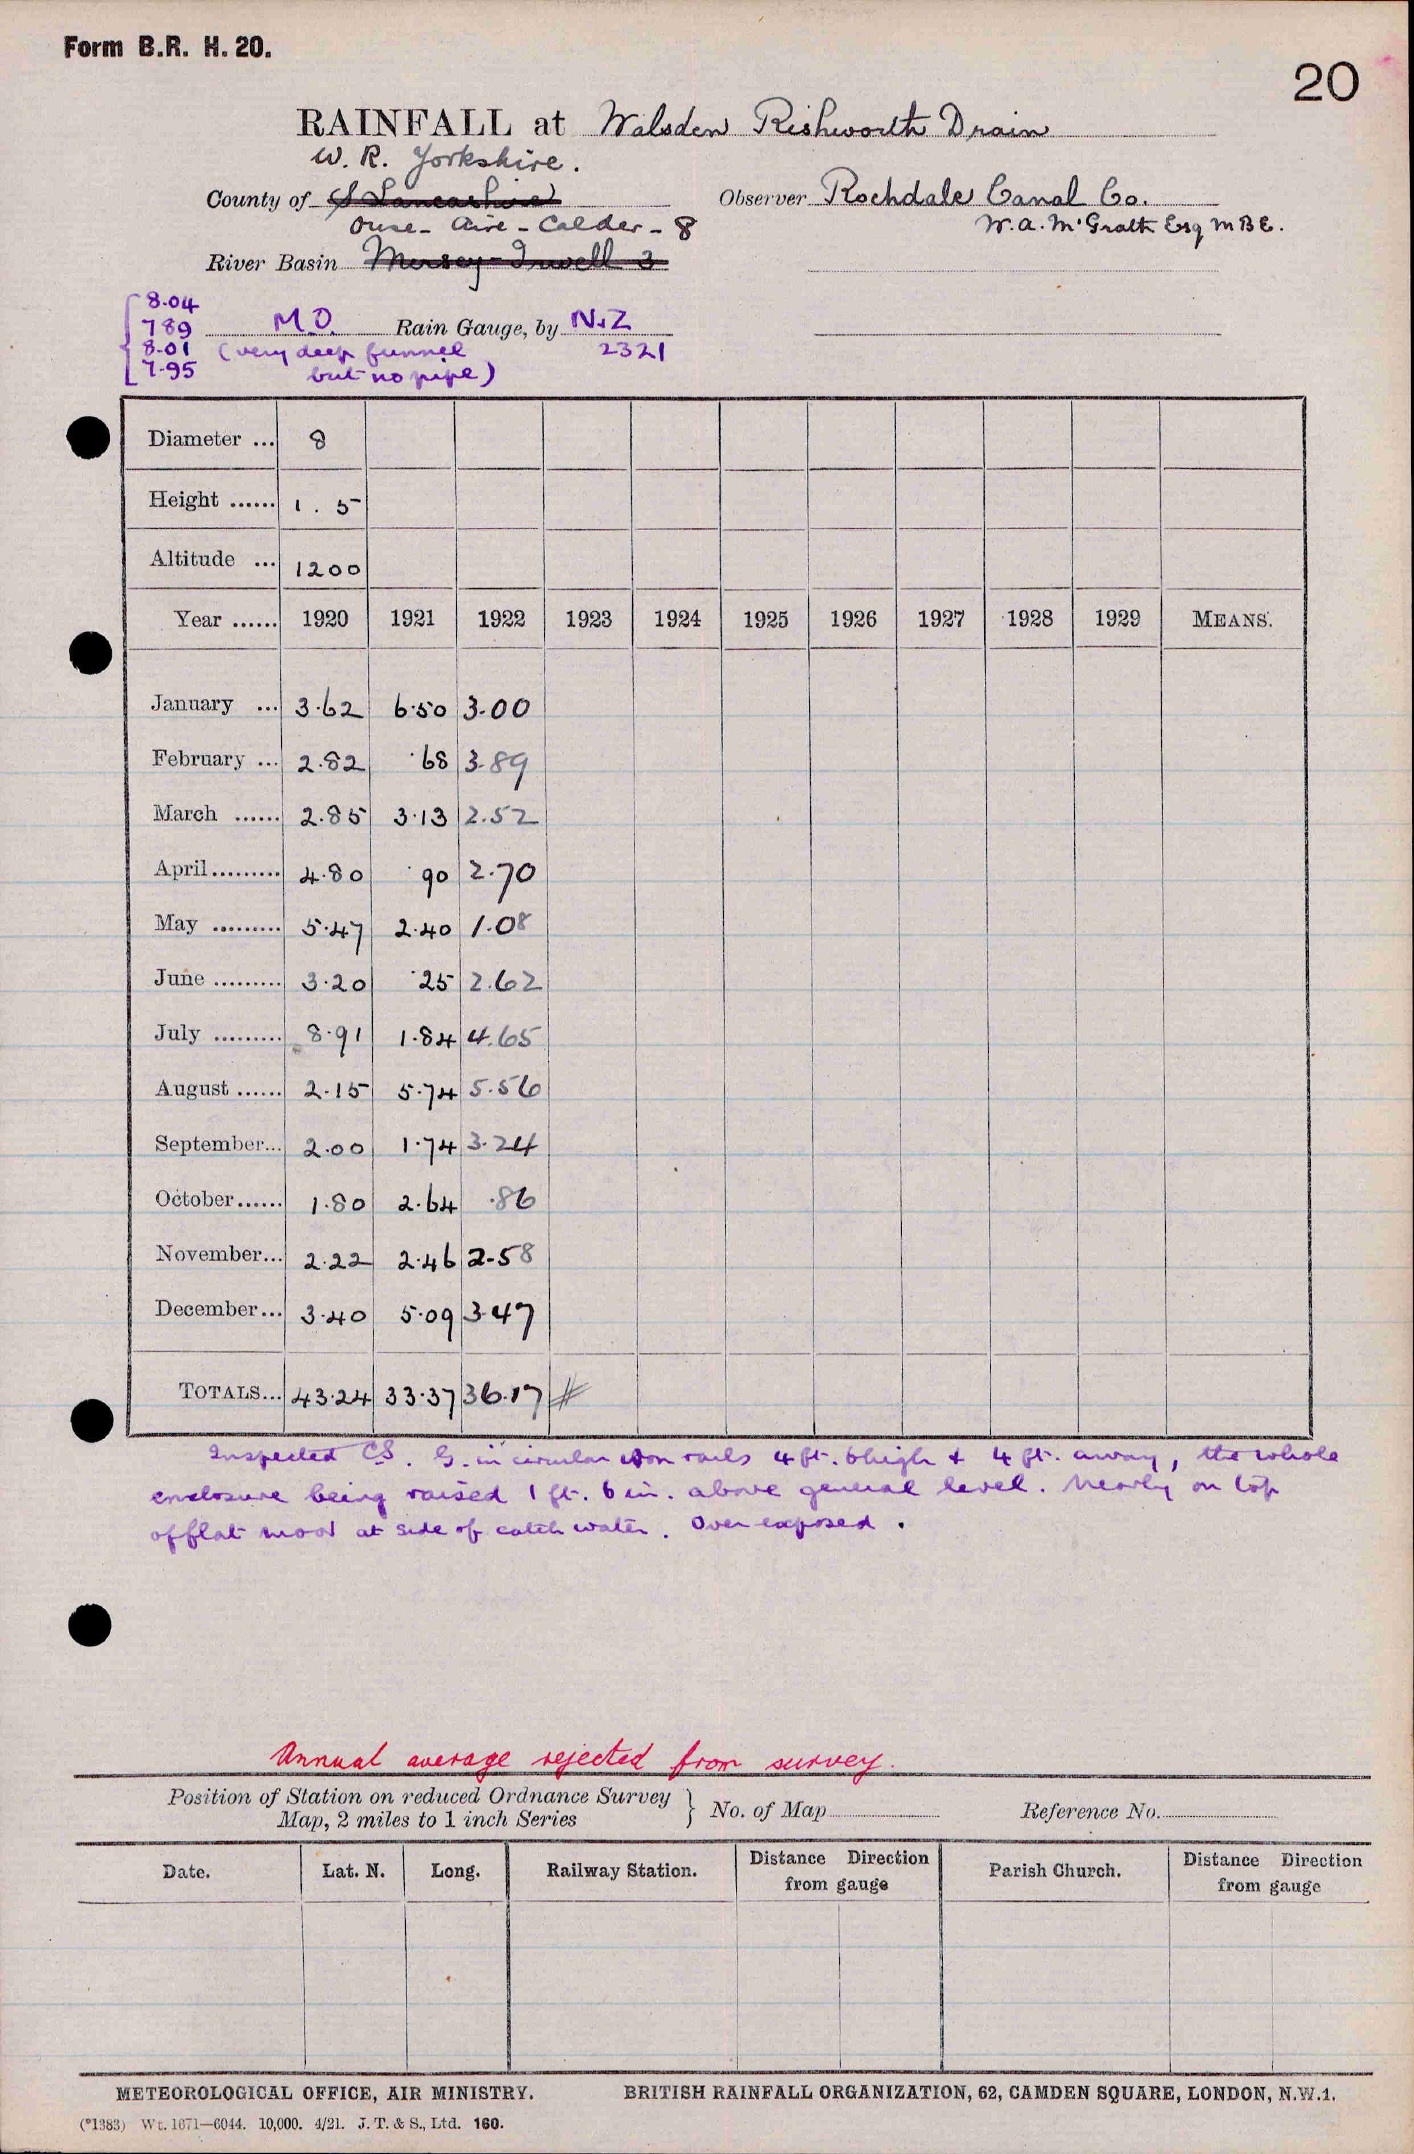 Form B.R. H. 20.
20
RAINFALL at Walsden Rishworth Drain
W. R. Yorkshire.
County of S Lancashire Observer Rochdale Canal Co.
Ouse - Aire - Calder - 8 W. A. McGrath Esq MBE.
River Basin Mersey-Irwell 3
8.04
7 89 M.O. Rain Gauge, by N&Z
8.01 (very deep funnel 2321
7.95 but no pipe)
Diameter ... 8
Height ...... 1 . 5
Altitude ... 1200
Year ...... 1920 1921 1922 1923 1924 1925 1926 1927 1928 1929 MEANS.
January ... 3.62 6.50 3.00
February ... 2.82 .68 3.89
March ...... 2.85 3.13 2.52
April ......... 4.80 .90 2.70
May ......... 5.47 2.40 1.08
June ......... 3.20 .25 2.62
July ......... 8.91 1.84 4.65
August ...... 2.15 5.74 5.56
September... 2.00 1.74 3.24
October...... 1.80 2.64 .86
November... 2.22 2.46 2.58
December... 3.40 5.09 3.47
TOTALS... 43.24 33.37 36.17 #
Inspected CS. G. in circular iron rails 4 ft. 6 high & 4 ft. away, the whole
enclosure being raised 1 ft. 6 in. above general level. Nearly on top
of flat moor at side of catch water. Over exposed.
Annual average rejected from survey.
Position of Station on reduced Ordnance Survey
Map, 2 miles to 1 inch Series } No. of Map Reference No.
Date. Lat. N. Long. Railway Station. Distance Direction from gauge Parish Church. Distance Direction from gauge
METEOROLOGICAL OFFICE, AIR MINISTRY. BRITISH RAINFALL ORGANIZATION, 62, CAMDEN SQUARE, LONDON, N.W.1.
(*1383) Wt. 1671—6044. 10,000. 4/21. J. T. & S., Ltd. 160.